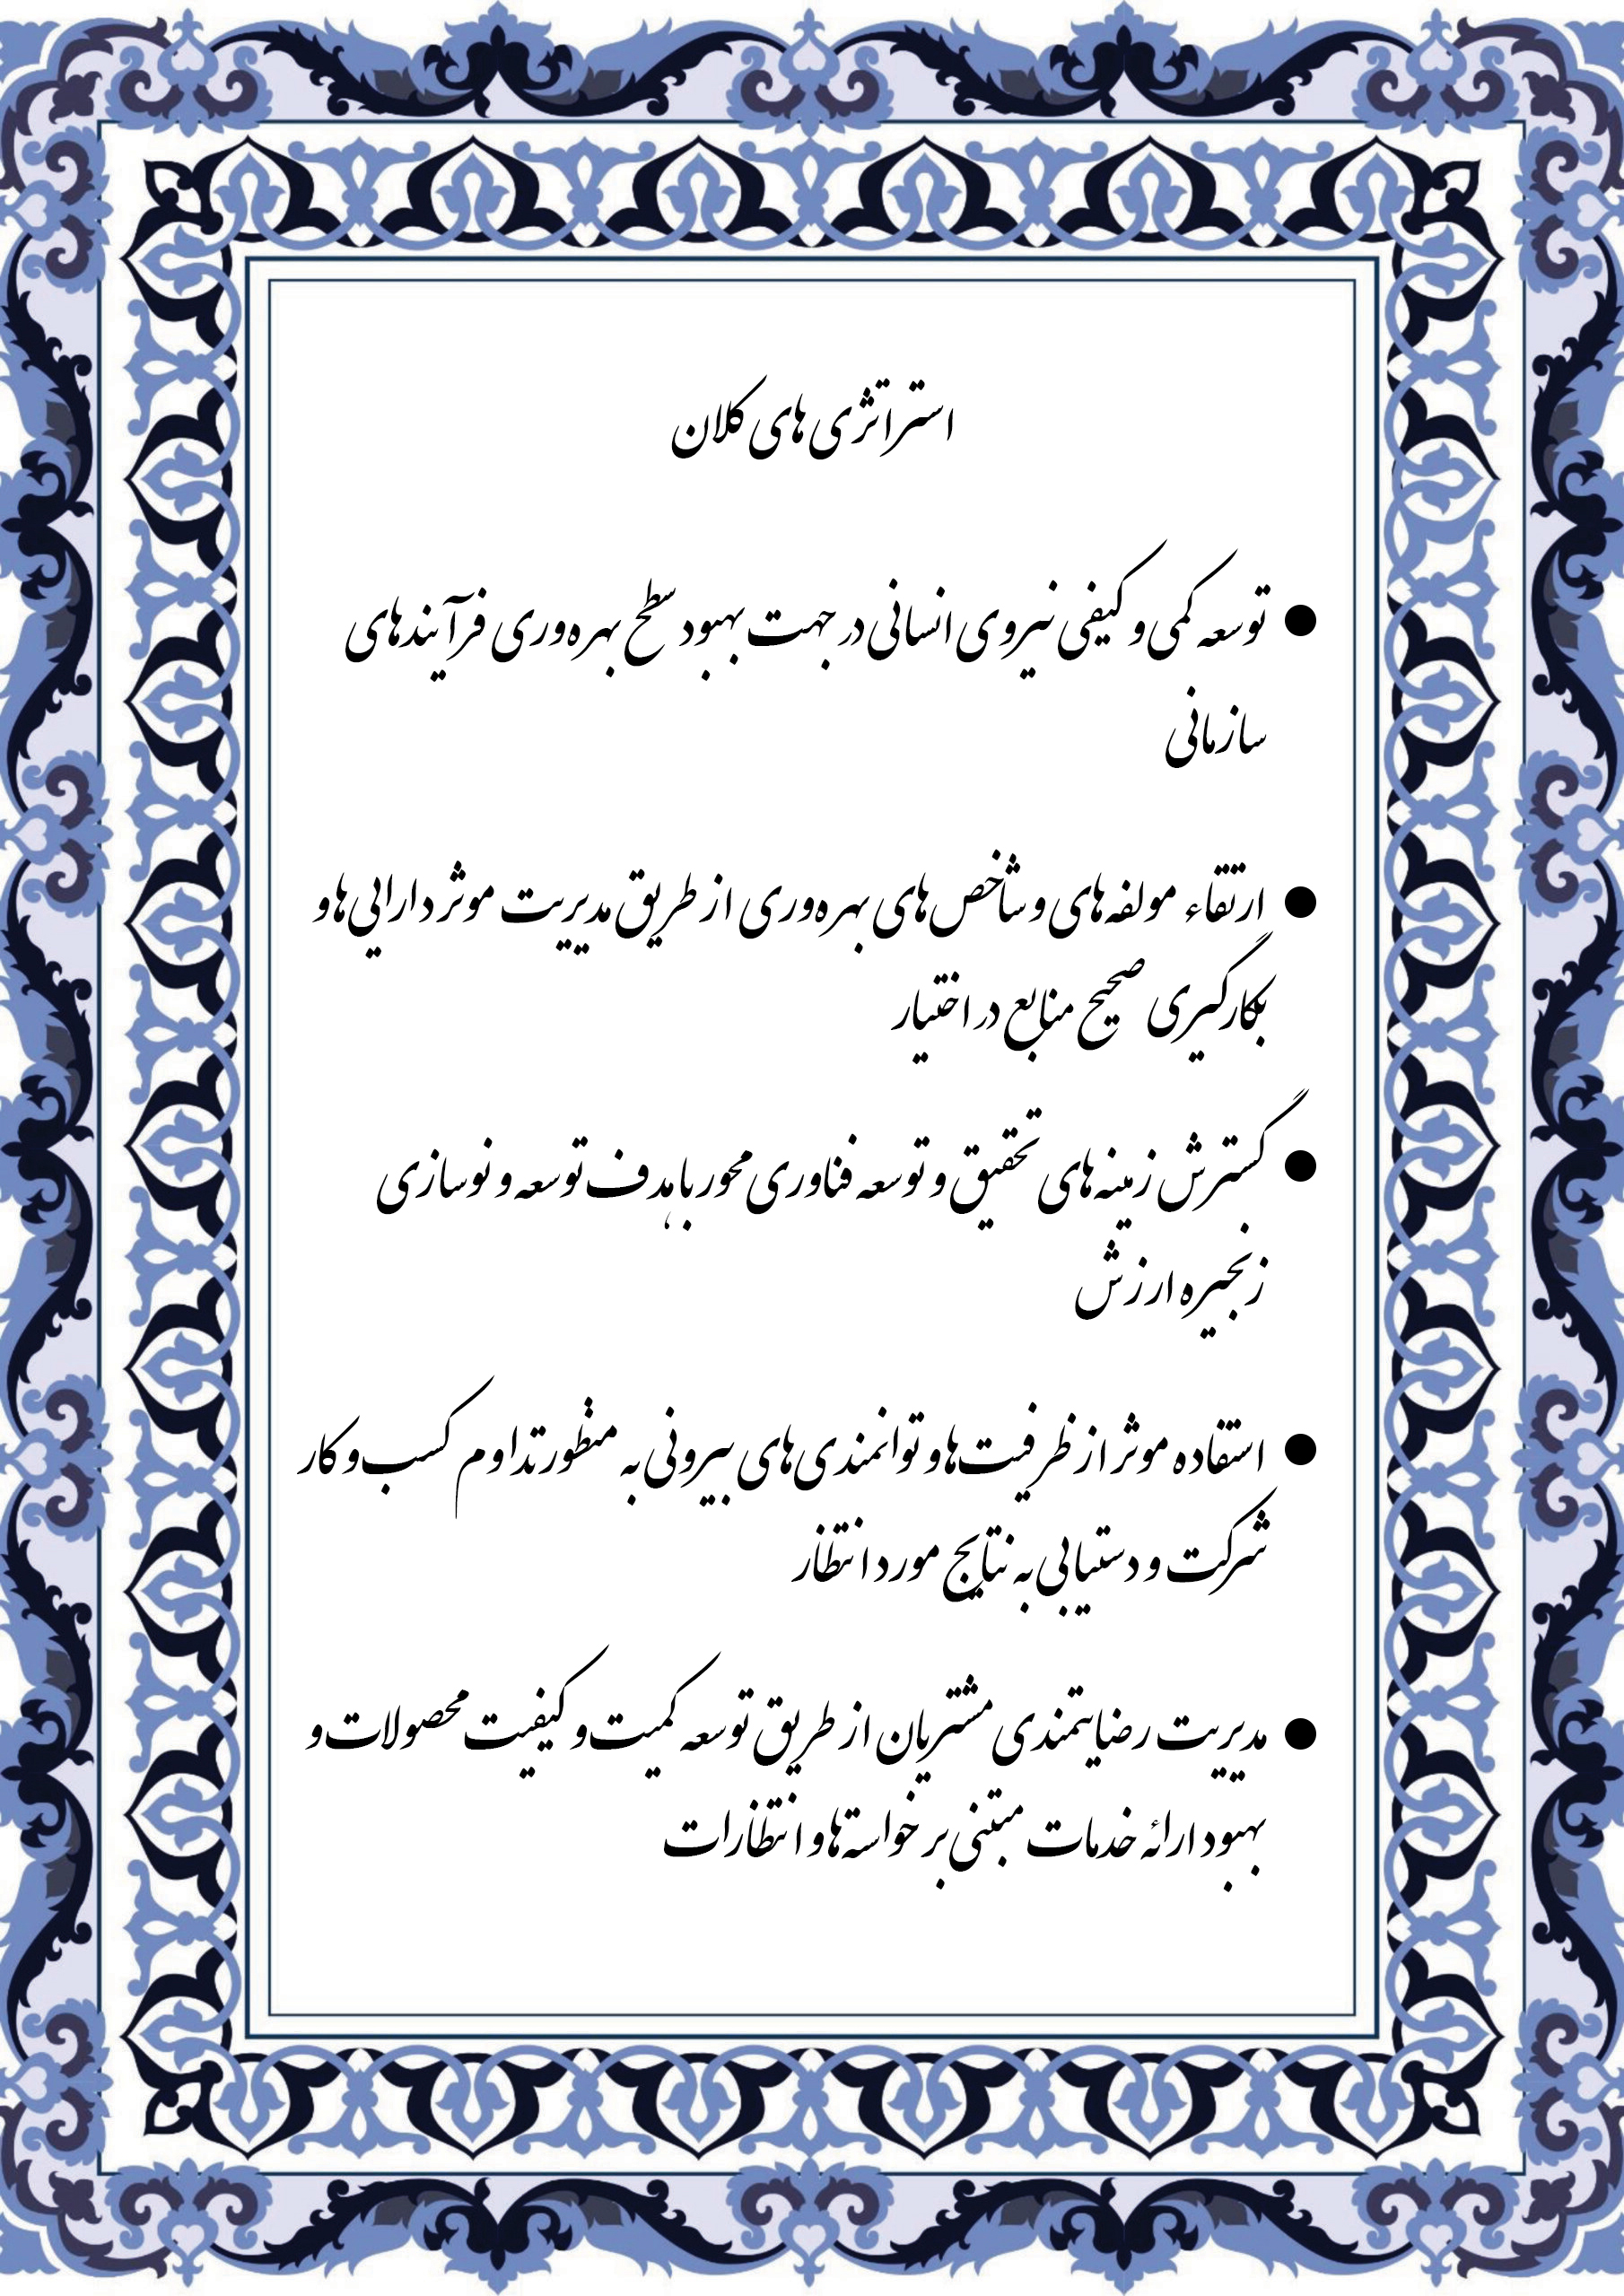 استراتژی های کلان
● توسعه کمی و کیفی نیروی انسانی در جهت بهبود سطح بهره‌وری فرآیندهای
سازمانی
● ارتقاء مولفه‌های و شاخص‌های بهره‌وری از طریق مدیریت موثر دارایی‌ها و
بکارگیری صحیح منابع در اختیار
● گسترش زمینه‌های تحقیق و توسعه فناوری محور با هدف توسعه و نوسازی
زنجیره ارزش
● استفاده موثر از ظرفیت‌ها و توانمندی‌های بیرونی به منظور تداوم کسب و کار
شرکت و دستیابی به نتایج مورد انتظار
● مدیریت رضایتمندی مشتریان از طریق توسعه کمیت و کیفیت محصولات و
بهبود ارائه خدمات مبتنی بر خواسته‌ها و انتظارات